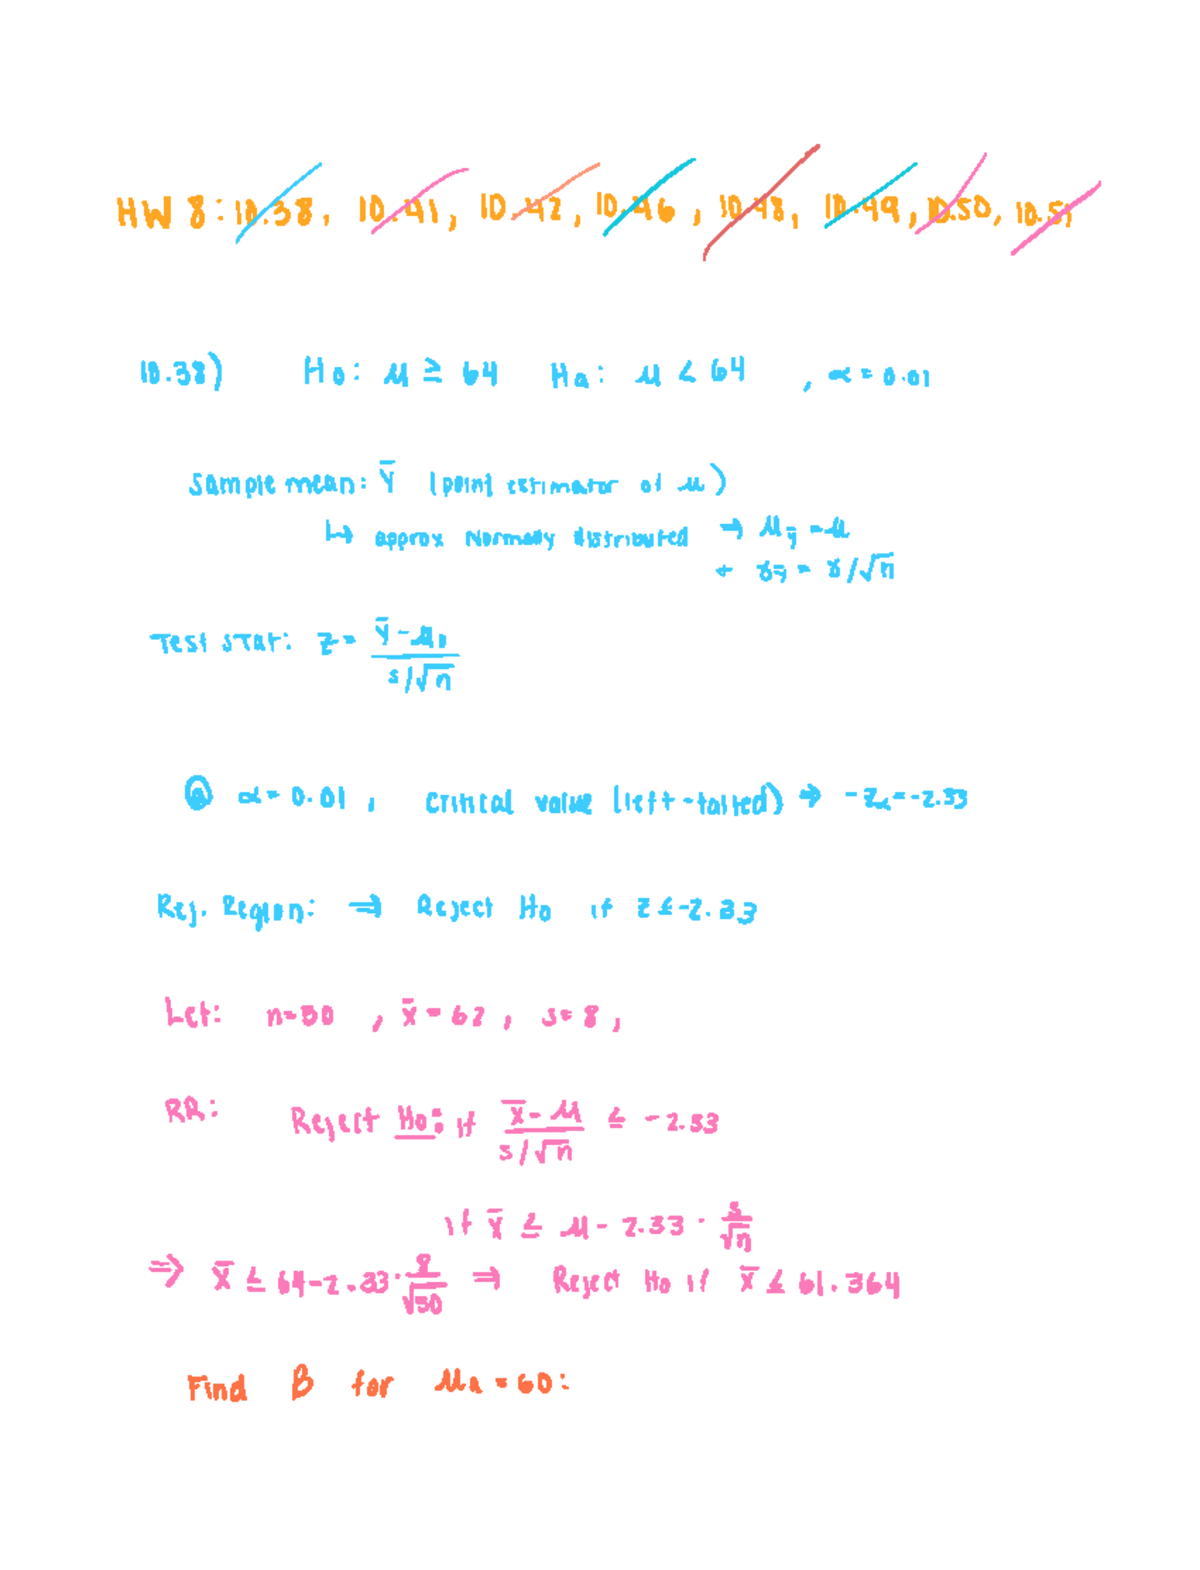 HW 8: 10.38, 10.41, 10.42, 10.46, 10.48, 10.49, 10.50, 10.51
10.38) H0: μ ≥ 64 Ha: μ < 64 , α = 0.01
Sample mean: Ȳ (point estimator of μ)
↳ approx Normally distributed → μȳ = μ
+ σȳ = σ/√n
Test stat: z = (ȳ - μ0)/(s/√n)
@ α = 0.01, critical value (left-tailed) → -Zα = -2.33
Rej. Region: ⇒ Reject H0 if z ≤ -2.33
Let: n=50 , x̄ = 62 , s = 8 ,
RR: Reject H0: if (x̄ - μ)/(s/√n) ≤ -2.33
if x̄ ≤ μ - 2.33 · s/√n
⇒ x̄ ≤ 64 - 2.33 · 8/√50 ⇒ Reject H0 if x̄ ≤ 61.364
Find β for μa = 60: